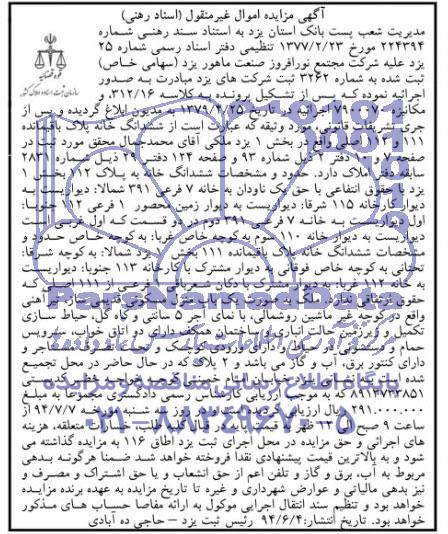 آگهی مزایده اموال غیرمنقول (اسناد رهنی)
مدیریت شعب پست بانک استان یزد به استناد سند رهنی شماره
۲۲۴۳۹۴ مورخ ۱۳۷۷/۲/۲۳ تنظیمی دفتر اسناد رسمی شماره ۲۵
یزد علیه شرکت مجتمع نورافروز صنعت ماهور یزد (سهامی خاص)
ثبت شده به شماره ۳۲۶۲ ثبت شرکت های یزد مبادرت به صدور
اجرائیه نموده که پس از تشکیل پرونده به کلاسه ۳۱۲/۱۶ و
اجرائیه در تاریخ ۱۳۷۹/۴/۲۵ به مدیون ابلاغ گردیده و پس از
جری تشریفات قانونی مورد وثیقه که عبارت است از ششدانگ خانه پلاک باقیمانده
۱۱۱ و ۱۱۲ اصلی واقع در بخش ۱ یزد ملکی آقای محمدجمال محقق مورد ثبت در
صفحه دفتر ذیل شماره ۹۳ و صفحه ۱۲۴ دفتر ۲۹ ذیل شماره ۲۸۳۱
سابقه دفتر املاک دارد. حدود و مشخصات ششدانگ خانه به پلاک ۱۱۲ بخش ۱
یزد با حقوق انتفاعی با حق یک ناودان به خانه ۷ فرعی ۳۹۱ شمالا: دیواریست به
دیوار کارخانه ۱۱۵ شرقا: دیواریست به دیوار زمین محصور ۱ فرعی ۱۱۲ جنوبا:
اول دیواریست به خانه ۷ فرعی ۳۹۱ دوم در دو قسمت که اول غربی است
دیواریست به دیوار خانه ۱۱۰ سوم به کوچه خاص غربا: به کوچه خاص حدود و
مشخصات ششدانگ خانه پلاک باقیمانده ۱۱۱ بخش ۱ یزد شمالا: به کوچه شرقا:
تحتانی به کوچه خاص فوقانی به دیوار مشترک با کارخانه ۱۱۳ جنوبا: دیواریست
به خانه ۱۱۲ غربا: به دیوار مشترک با دکان شعربافی ۱ فرعی از ۱۱۱ اصلی که
حقوق ارتفاقی ندارد. ملک به صورت یک باب منزل مسکونی قدیمی ساز غیراهنی
واقع در کوچه غیر ماشین روشمالی، با نمای آجر ۵ سانتی و کاه گل، حیاط سازی
تکمیل و زیرزمین حالت انباری و ساختمان همکف دارای دو اتاق خواب، سرویس
حمام و دارای ورودی کوچک و
دارای کنتور برق، آب و گاز می باشد و ۲ پلاک که در حال حاضر در محل تجمیع
شده
۸۹۱۳۷۳۳۸۵۱ که به موجب ارزیابی کارشناس رسمی دادگستری مجموعا به مبلغ
۲۹۱.۰۰۰.۰۰۰ ریال ارزیابی گردیده است در روز سه شنبه مورخه ۹۴/۷/۷ از
ساعت ۹ صبح متعلقه، هزینه
های اجرائی و حق مزایده در محل اجرای ثبت یزد اطاق ۱۱۶ به مزایده گذاشته می
شود و به بالاترین قیمت پیشنهادی نقدا فروخته خواهد شد ضمنا هرگونه بدهی
مربوط به آب، برق و گاز و تلفن اعم از حق انشعاب و یا حق اشتراک و مصرف و
نیز بدهی مالیاتی و عوارض شهرداری و غیره تا تاریخ مزایده به عهده برنده مزایده
خواهد بود و تنظیم سند انتقال اجرایی موکول به ارائه مفاصا حساب های مذکور
خواهد بود. تاریخ انتشار: ۹۴/۶/۴ رئیس ثبت یزد – حاجی ده آبادی
قوه قضائیه
سازمان ثبت اسناد و املاک کشور
پایگاه اطلاع رسانی مناقصه و مزایده
۰۲۱-۸۸۳۴۹۶۷۰-۵